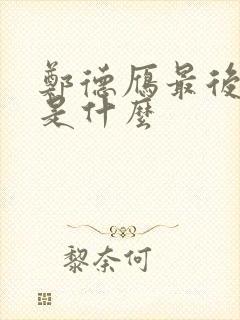 鄭德雁最後
是什麼
黎奈何